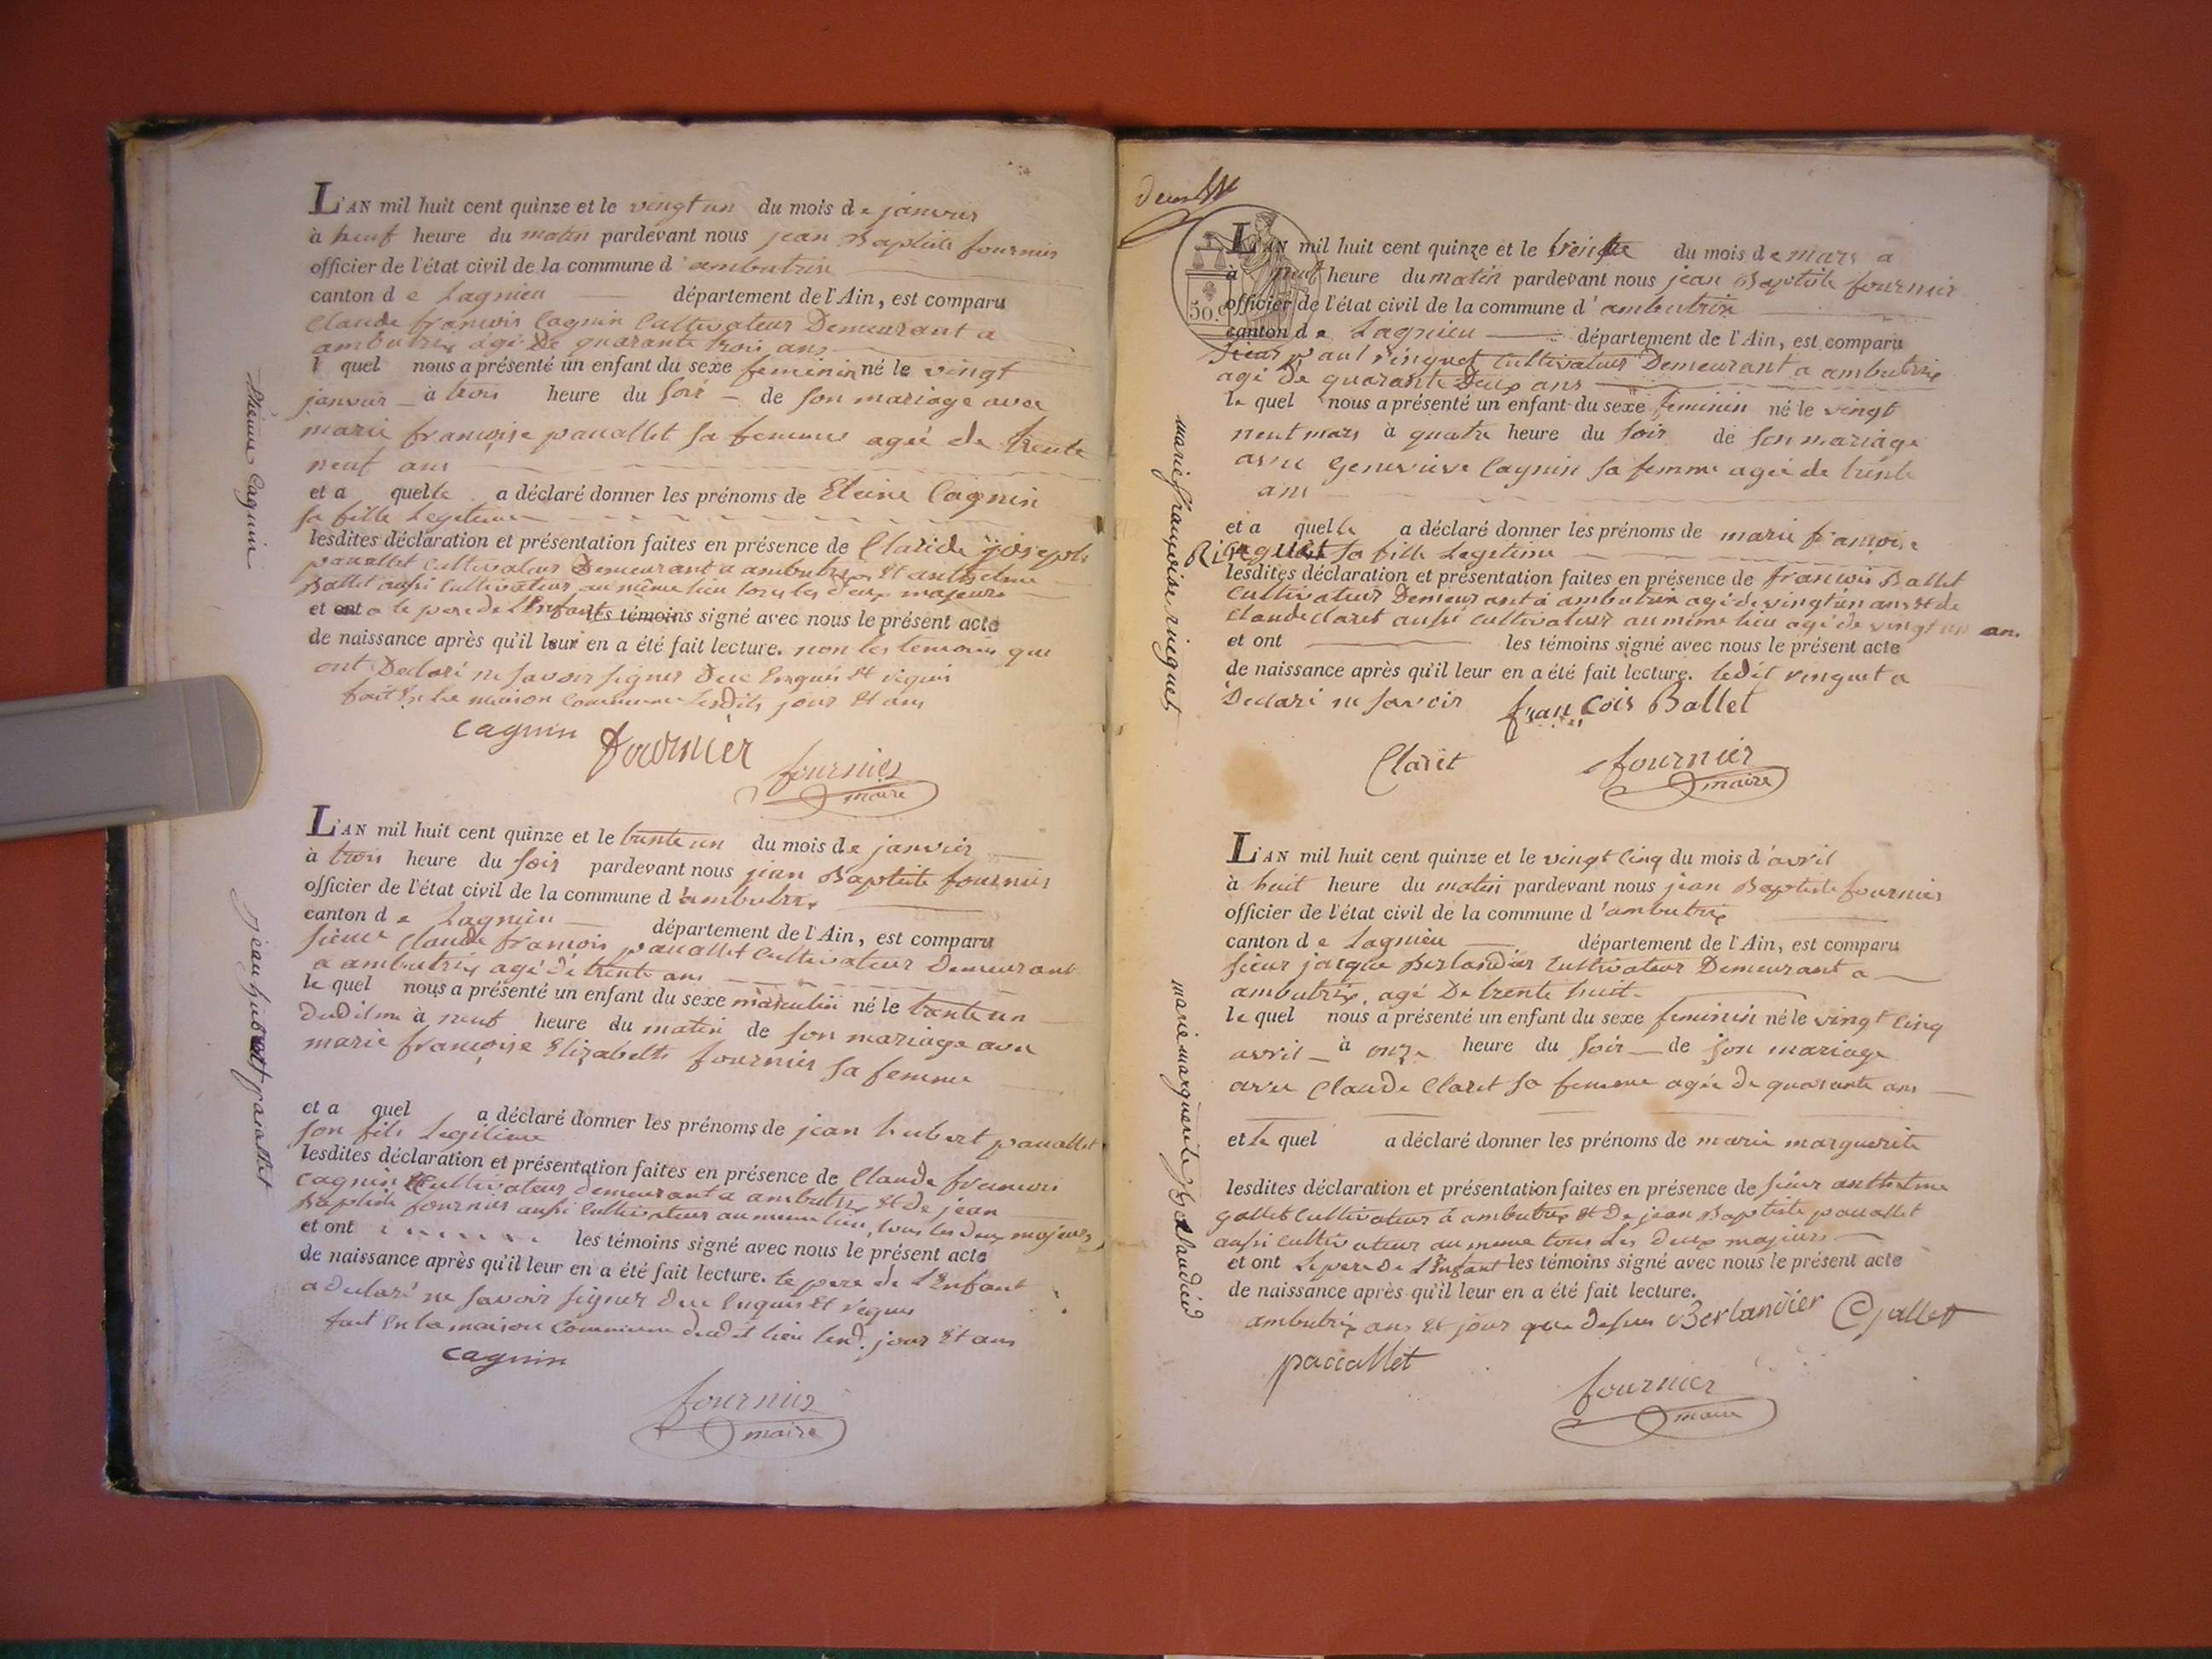 L'AN mil huit cent quinze et le vingt un du mois de janvier
à neuf heure du matin pardevant nous jean Baptiste fournier
officier de l'état civil de la commune d'ambutrix
canton de Lagnieu département de l'Ain, est comparu
Claude françois Cagnin Cultivateur Demeurant a
ambutrix agé De quarante trois ans
l quel nous a présenté un enfant du sexe feminin né le vingt
janvier à trois heure du soir de son mariage avec
marie françoise pacallet sa femme agée de trente
neuf ans
et a quelle a déclaré donner les prénoms de Cagnin
sa fille Legitime
lesdites déclaration et présentation faites en présence de Claude joseph
pacallet cultivateur Demeurant a ambutrix Et anthelme
Ballet aussi Cultivateur au même lieu tous les deux majeurs
et ont a le pere de L'Enfant les témoins signé avec nous le présent acte
de naissance après qu'il leur en a été fait lecture. non les temoins qui
ont Declaré ne savoir signer Due Enquis Et requis
fait En la maison Commune lesdits jour Et ans
cagnin fournier
fournier
maire
Cagnin
L'AN mil huit cent quinze et le trente un du mois de janvier
à trois heure du soir pardevant nous jean Baptiste fournier
officier de l'état civil de la commune d'ambutrix
canton de Lagnieu département de l'Ain, est comparu
sieur Claude françois pacallet Cultivateur Demeurant
a ambutrix agé de trente ans
le quel nous a présenté un enfant du sexe masculin né le trente un
dudit à neuf heure du matin de son mariage avec
marie françoise Elizabeth fournier sa femme
et a quel a déclaré donner les prénoms de jean hubert pacallet
son fils Legitime
lesdites déclaration et présentation faites en présence de Claude françois
cagnin Cultivateur demeurant a ambutrix Et de jean
Baptiste fournier aussi Cultivateur au meme lieu, tous les deux majeurs
et ont les témoins signé avec nous le présent acte
de naissance après qu'il leur en a été fait lecture. le pere de L'Enfant
a declaré ne savoir signer Due Enquis Et requis
fait En la maison Commune dudit lieu jour Et ans
cagnin
fournier
maire
jean hubert pacallet
50.
L'AN mil huit cent quinze et le trente du mois de mars a
à neuf heure du matin pardevant nous jean Baptiste fournier
officier de l'état civil de la commune d'ambutrix
canton de Lagnieu département de l'Ain, est comparu
sieur paul ringuet Cultivateur Demeurant a ambutrix
agé de quarante Deux ans
le quel nous a présenté un enfant du sexe feminin né le vingt
neuf mars à quatre heure du soir de son mariage
avec Genevieve Cagnin sa femme agée de trente
ans
et a quelle a déclaré donner les prénoms de marie françoise
Ringuet sa fille Legitime
lesdites déclaration et présentation faites en présence de françois Ballet
Cultivateur Demeurant a ambutrix agé de vingt un ans Et de
Claude claret aussi cultivateur au même lieu agé de vingt un ans
et ont les témoins signé avec nous le présent acte
de naissance après qu'il leur en a été fait lecture. ledit ringuet a
Declaré ne savoir
françois Ballet
Claret fournier
maire
marie françoise ringuet
L'AN mil huit cent quinze et le vingt cinq du mois d'avril
à huit heure du matin pardevant nous jean Baptiste fournier
officier de l'état civil de la commune d'ambutrix
canton de Lagnieu département de l'Ain, est comparu
sieur jacque Berlandier Cultivateur Demeurant a
ambutrix, agé De trente huit
le quel nous a présenté un enfant du sexe feminin né le vingt cinq
avril à onze heure du soir de son mariage
avec Claude Claret sa femme agée de quarante ans
et le quel a déclaré donner les prénoms de marie marguerite
lesdites déclaration et présentation faites en présence de sieur anthelme
gallet Cultivateur à ambutrix Et De jean Baptiste pacallet
aussi cultivateur au meme tous les deux majeurs
et ont Le pere De L'Enfant les témoins signé avec nous le présent acte
de naissance après qu'il leur en a été fait lecture.
ambutrix ans Et jour que desus Berlandier gallet
paccallet
fournier
maire
marie marguerite